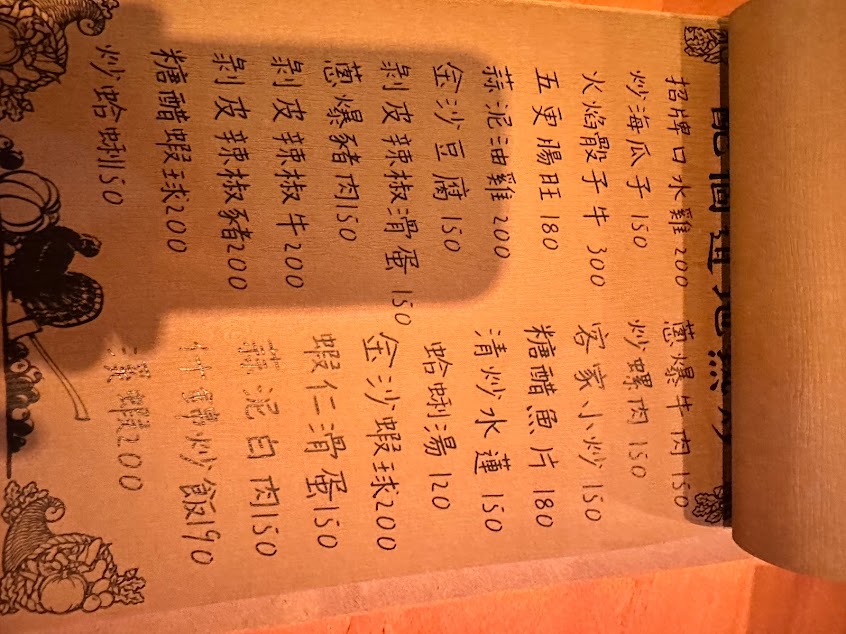 配個道地熱炒
招牌口水雞 200 蔥爆牛肉 150
炒海瓜子 150 炒螺肉 150
火焰骰子牛 300 客家小炒 150
五更腸旺 180 糖醋魚片 180
蒜泥油雞 200 清炒水蓮 150
金沙豆腐 150 蛤蜊湯 120
剝皮辣椒滑蛋 150 金沙蝦球200
蔥爆豬肉150 蝦仁滑蛋150
剝皮辣椒牛200 蒜泥白肉150
剝皮辣椒豬200 什錦炒飯190
糖醋蝦球200 溪蝦200
炒蛤蜊150